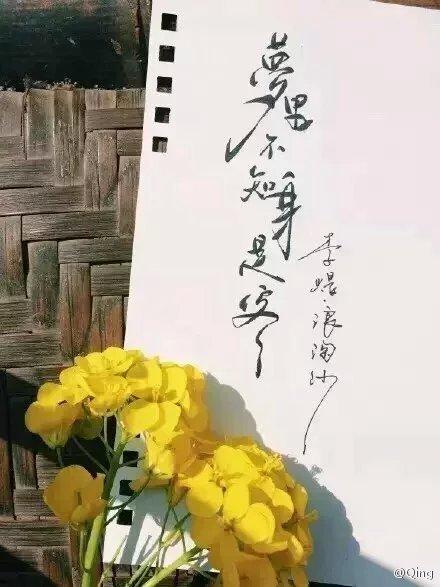 夢里不知身是客
李煜·浪淘沙
@Qing